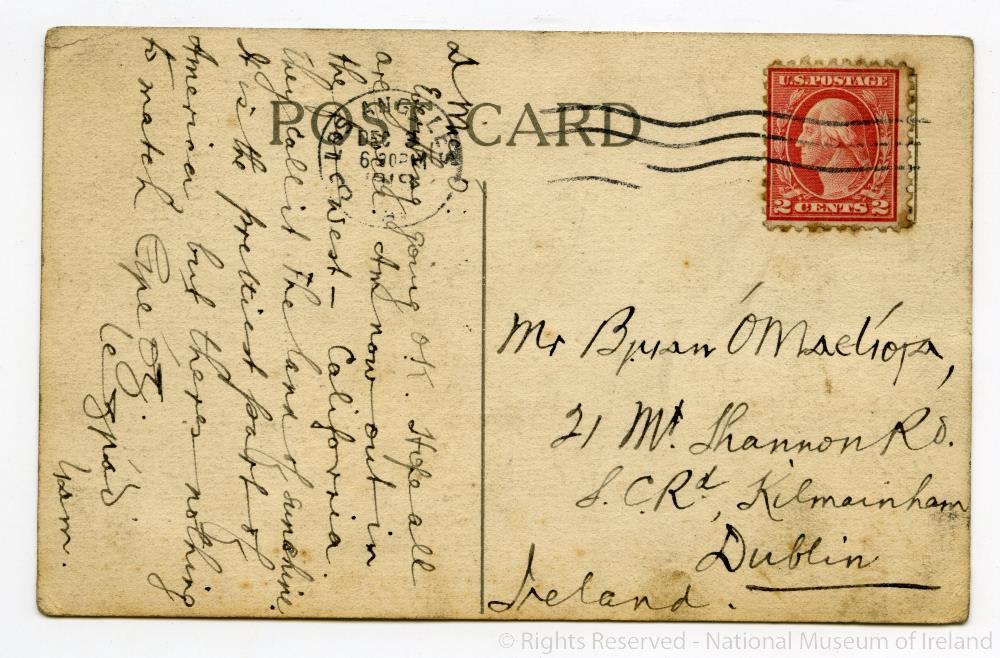 POST CARD
ANGELES
DEC
6 30PM
U.S. POSTAGE
2 CENTS 2
A Mac O.
Everything going OK. Hope all
are well. Am now out in
the West – California
They call it The land of Sunshine.
It is the prettiest part of
America but theres nothing
to match Éire Óg.
le gráḋ
Liam.
Mr Bryan
21 Mt. Shannon Rd.
S. C. Rd, Kilmainham
Dublin
Ireland.
© Rights Reserved - National Museum of Ireland